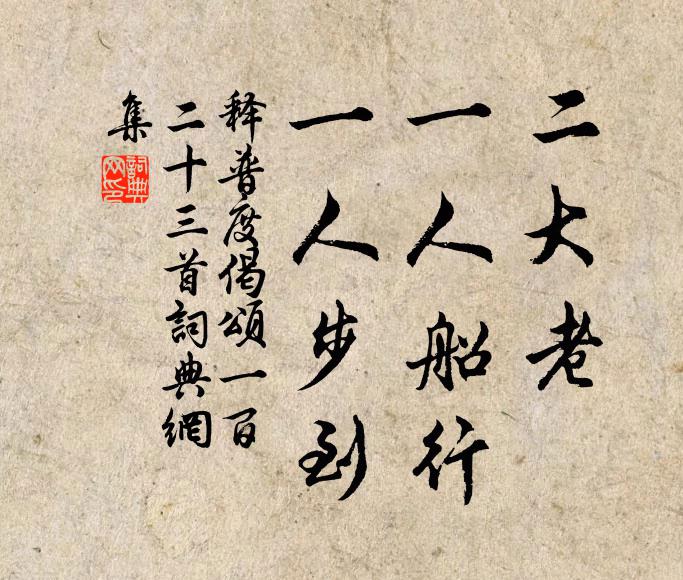 二大老
一人船行
一人步到
释普度偈頌一百
二十三首詞典網
集
詞典
网印